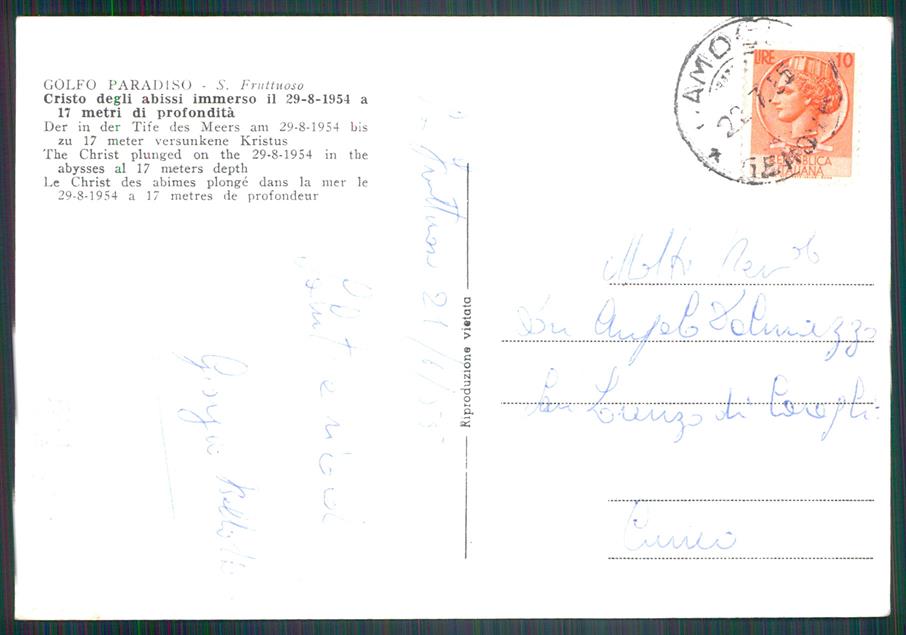 GOLFO PARADISO - S. Fruttuoso
Cristo degli abissi immerso il 29-8-1954 a
17 metri di profondità
Der in der Tife des Meers am 29-8-1954 bis
zu 17 meter versunkene Kristus
The Christ plunged on the 29-8-1954 in the
abysses al 17 meters depth
Le Christ des abimes plongé dans la mer le
29-8-1954 a 17 metres de profondeur
Fruttuoso 21/6/55
Giorgio
Riproduzione vietata
LIRE 10
REPUBBLICA
ITALIANA
CAMOGLI
GENOVA
Molto Rev
Don Angelo Dalmazzo
San Lorenzo di Caraglio
Cuneo